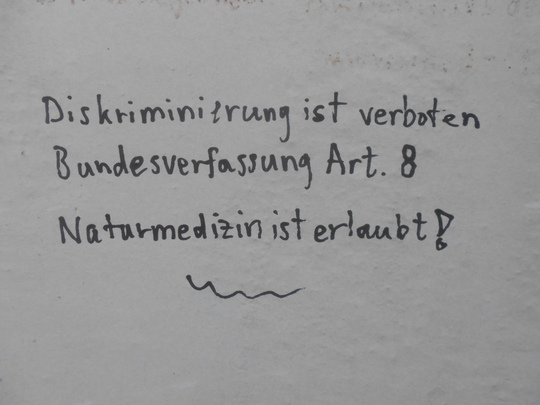 Diskriminierung ist verboten
Bundesverfassung Art. 8
Naturmedizin ist erlaubt!